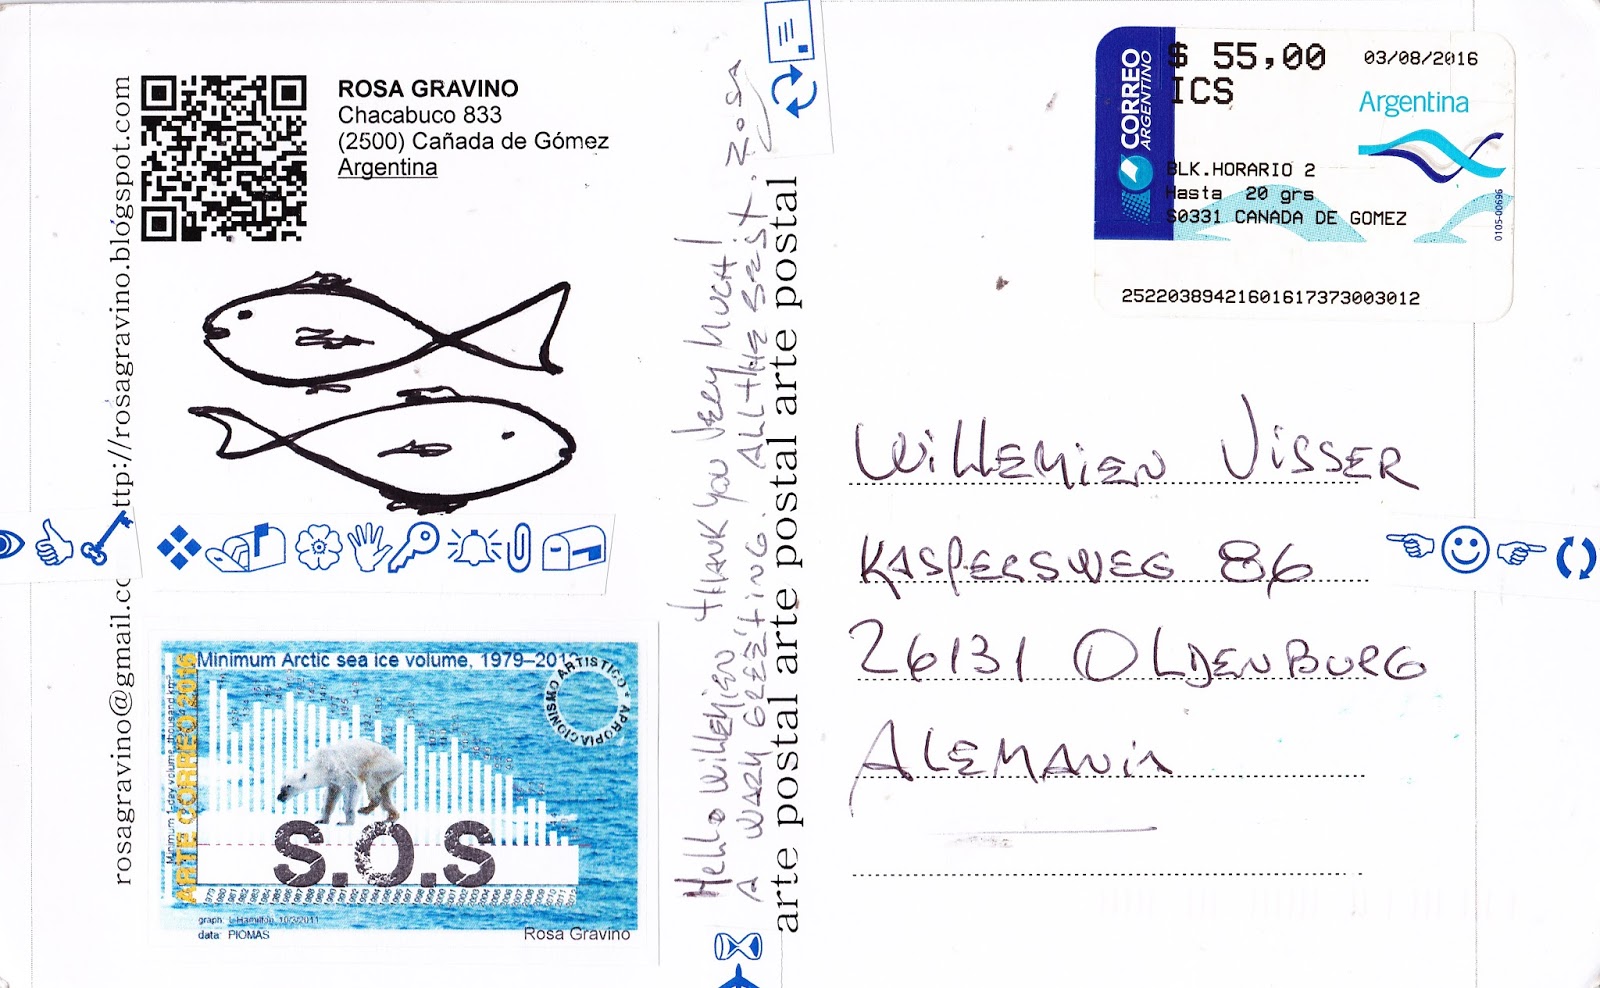 ROSA GRAVINO
Chacabuco 833
(2500) Cañada de Gómez
Argentina
ttp://rosagravino.blogspot.com
rosagravino@gmail.co
Minimum Arctic sea ice volume, 1979–201
ARTE CORREO 2016
Minimum 1-day volume, thousand km³
APROPIACIONISMO ARTISTICO
S.O.S
graph: L Hamilton, 10/3/2011
data: PIOMAS
Rosa Gravino
HELLO WILLEMIEN THANK YOU VERY MUCH!
A WARM GREETING. ALL THE BEST. ROSA
arte postal arte postal arte postal arte postal
CORREO
ARGENTINO
$ 55,00
ICS
03/08/2016
Argentina
BLK.HORARIO 2
Hasta 20 grs
S0331 CANADA DE GOMEZ
0105-00696
25220389421601617373003012
WILLEMIEN VISSER
KASPERSWEG 86
26131 OLDENBURG
ALEMANIA